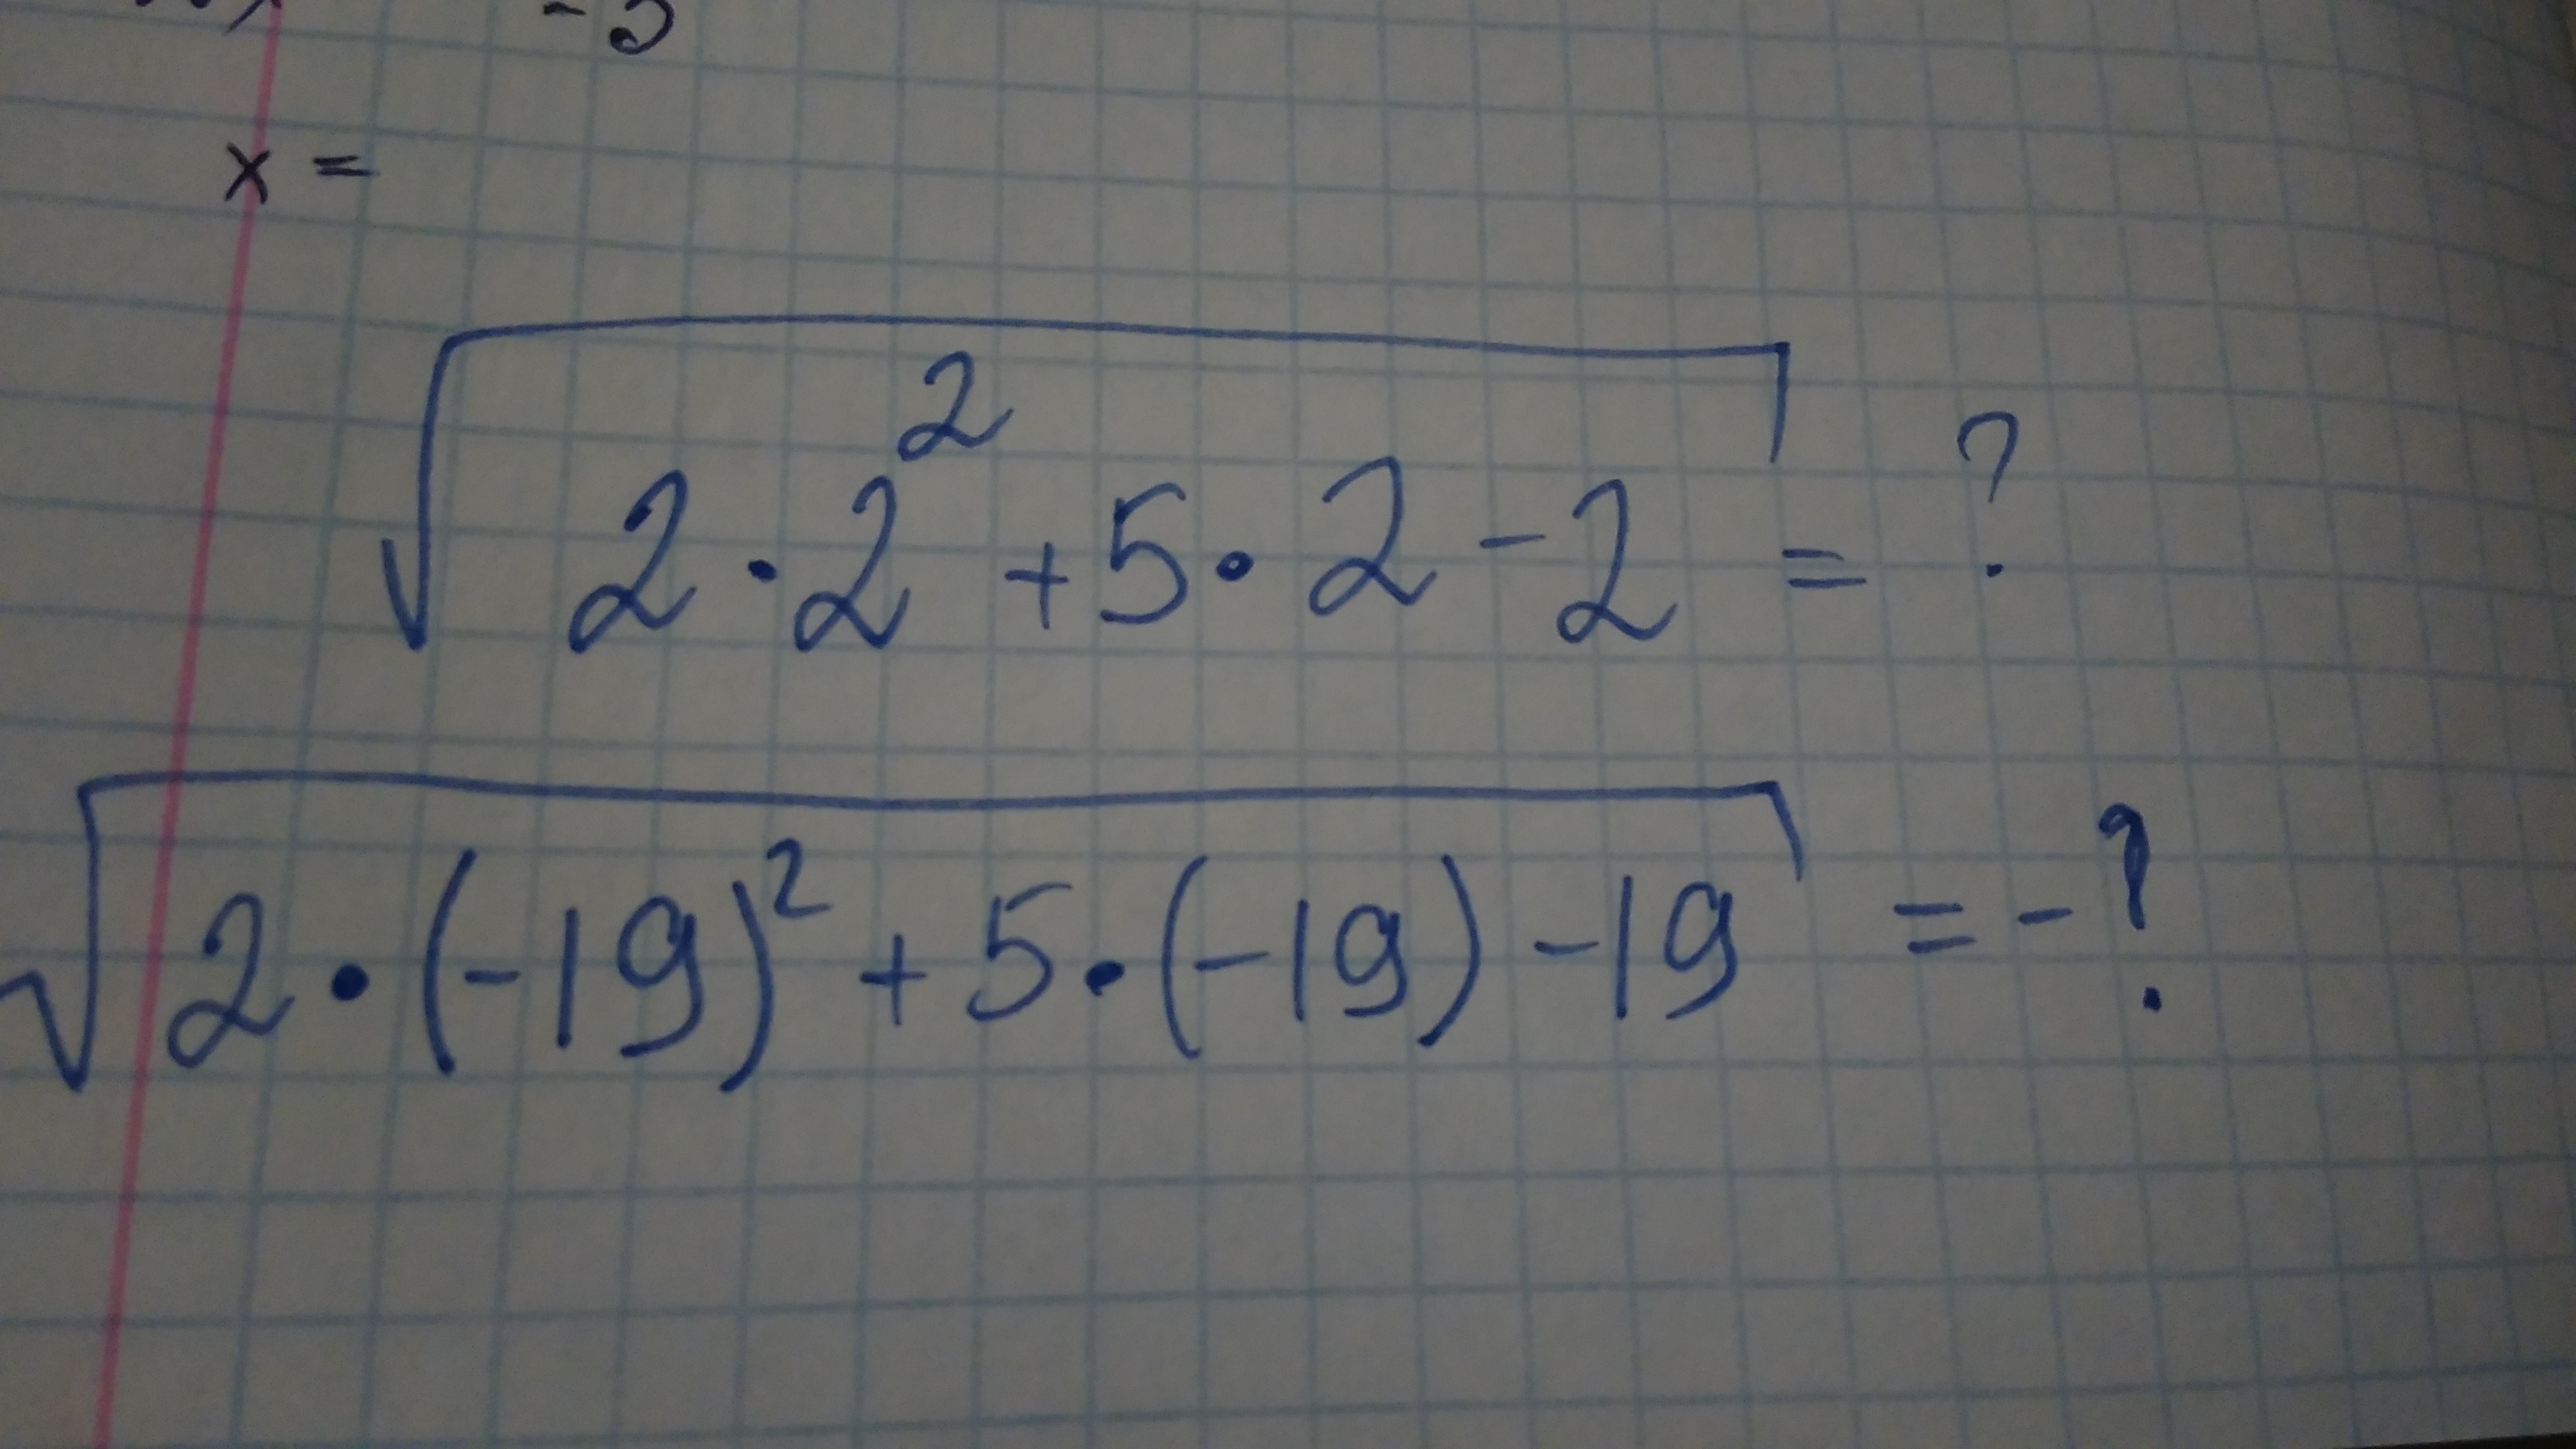 x =
√(2 · 2² + 5 · 2 - 2) = ?
√(2 · (-19)² + 5 · (-19) - 19) = - ?